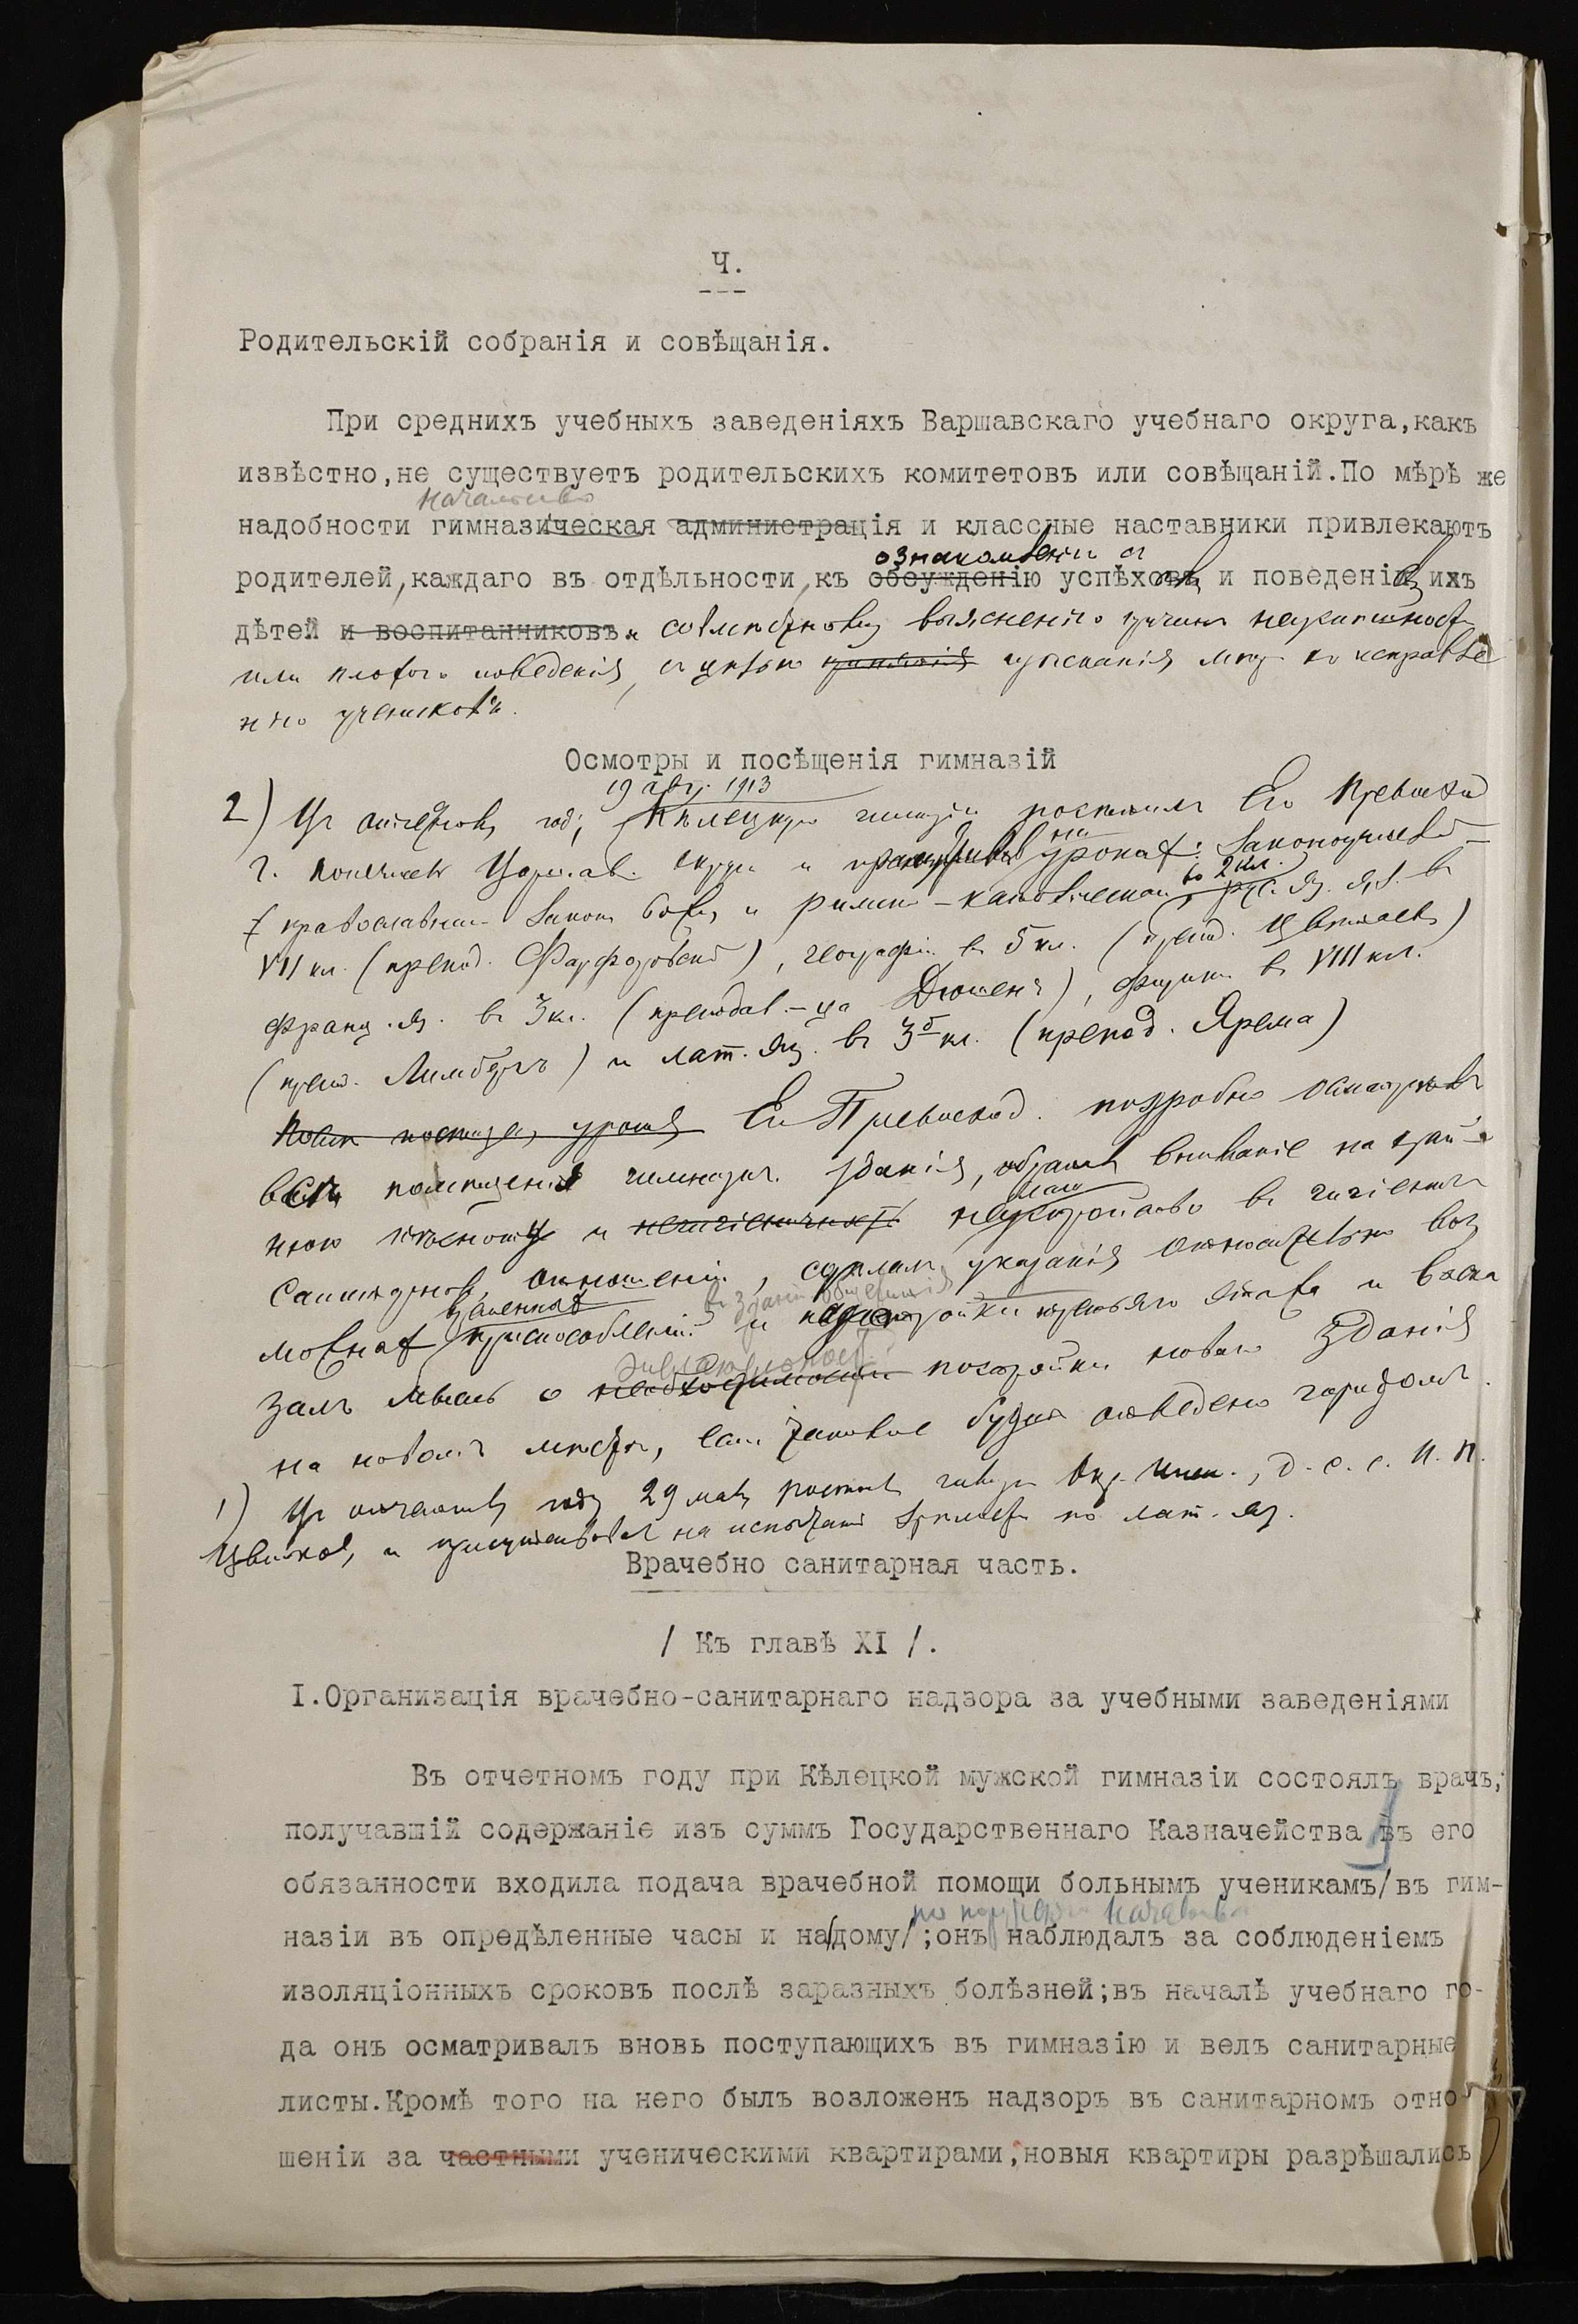 Ч.
Родительскій собранія и совѣщанія.
При среднихъ учебныхъ заведеніяхъ Варшавскаго учебнаго округа,какъ
извѣстно,не существуетъ родительскихъ комитетовъ или совѣщаній.По мѣрѣ же
начальство
надобности гимназическая администрація и классные наставники привлекаютъ
ознакомленію съ
родителей,каждаго въ отдѣльности,къ обсужденію успѣховъ и поведенія ихъ
дѣтей и воспитанниковъ и совмѣстному выясненію причинъ неуспѣшности
или плохого поведенія, съ цѣлью изысканія мѣръ къ исправле
нію учениковъ.
Осмотры и посѣщенія гимназій
19 авг. 1913
2) Въ отчетномъ году Кѣлецкую гимназію посѣтилъ Его Превосход
г. Попечитель Варшав. округа и на урокахъ: Законоучителей
во 2 кл.
православнаго Закона Божія и римско-католическаго, рус. яз. в
VII кл. (препод. Фарфоровскій), географіи в 5 кл. (препод. Цвѣтаевъ)
Франц. яз. в 3 кл. (преподав-ца Дюшенъ), физики в VIII кл.
(препод. Лимбергъ) и лат. яз. в 3б кл. (препод. Ярема)
урока Его Превосход. подробно осматривалъ
всѣ помѣщенія гимназич. зданія, обратилъ вниманіе на край-
нюю тѣсноту и неустройство в гигіенич.
санитарномъ отношеніи, сдѣлалъ указанія относительно воз
въ зданіи общежитія
можныхъ приспособленій и надстройки третьяго этажа и выска
залъ мысль о необходимости постройки новаго зданія
на новомъ мѣстѣ, если таковое будетъ отведено городомъ.
1) Въ отчетномъ году 29 мая посѣтилъ гимназ. Окр. Инсп., д. с. с. И. П.
Цвѣтковъ, и присутствовалъ на испытаніи зрѣлости по лат. яз.
Врачебно санитарная часть.
/ Къ главѣ XI /.
I.Организація врачебно-санитарнаго надзора за учебными заведеніями
Въ отчетномъ году при Кѣлецкой мужской гимназіи состоялъ врачъ,
получавшій содержаніе изъ суммъ Государственнаго Казначейства въ его
обязанности входила подача врачебной помощи больнымъ ученикамъ/въ гим-
по порученію начальства
назіи въ опредѣленные часы и на дому/;онъ наблюдалъ за соблюденіемъ
изоляціонныхъ сроковъ послѣ заразныхъ болѣзней;въ началѣ учебнаго го-
да онъ осматривалъ вновь поступающихъ въ гимназію и велъ санитарные
листы.Кромѣ того на него былъ возложенъ надзоръ въ санитарномъ отно-
шеніи за частными ученическими квартирами,новыя квартиры разрѣшались